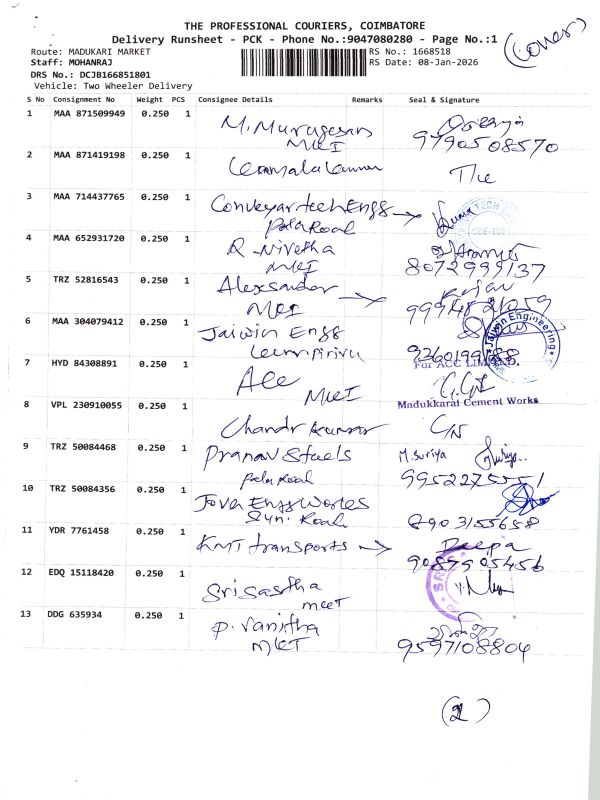 THE PROFESSIONAL COURIERS, COIMBATORE
Delivery Runsheet - PCK - Phone No.:9047080280 - Page No.:1
(Cover)
Route: MADUKARI MARKET
RS No.: 1668518
Staff: MOHANRAJ
RS Date: 08-Jan-2026
DRS No.: DCJB166851801
Vehicle: Two Wheeler Delivery
S No Consignment No Weight PCS Consignee Details Remarks Seal & Signature
1 MAA 871509949 0.250 1 M. Murugesan
MKT 9790508570
2 MAA 871419198 0.250 1
3 MAA 714437765 0.250 1 Conveyar tech Engg
Pala Road
4 MAA 652931720 0.250 1 R. Nivetha
MKT 8072999137
5 TRZ 52816543 0.250 1 Alexsandar
MKT
6 MAA 304079412 0.250 1 Jaiwin Engg
Jaiwin Engineering
7 HYD 84308891 0.250 1 ACC
MKT
For ACC LIMITED.
Madukkarai Cement Works
8 VPL 230910055 0.250 1 Chandr Kumar
9 TRZ 50084468 0.250 1 Pranav Steels M. Suriya
Pala Road 9952275551
10 TRZ 50084356 0.250 1 Jover Engg Works
Road 8903155658
11 YDR 7761458 0.250 1 KMT transports Deepa
9087905456
12 EDQ 15118420 0.250 1 Sri Sastha
mket
13 DDG 635934 0.250 1 P. Vanitha
MKT 9597108804